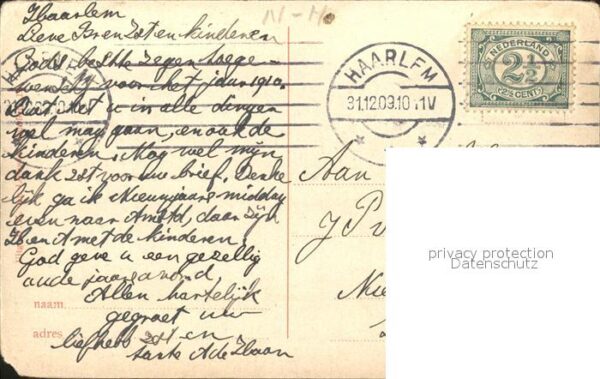 Haarlem
Lieve Bren Zst en kinderen
Gods beste zegen toege-
wenscht voor het jaar 1910.
Dat het u in alle dingen
wel mag gaan, en ook de
kinderen. Nog wel mijn
dank zst voor uw brief. Denke
lijk ga ik Nieuwjaarsmiddag
even naar Amstd, daar zijn
H en A met de kinderen.
God geve u een gezellig
oude jaarsavond
Allen hartelijk
gegroet uw
liefhebb zst en
tante A de Haan
naam
adres
N-Ho
HAARLEM
31.12.09.10-11V
NEDERLAND
2½
(2½ CENT)
Aan
J P
Nie
privacy protection
Datenschutz